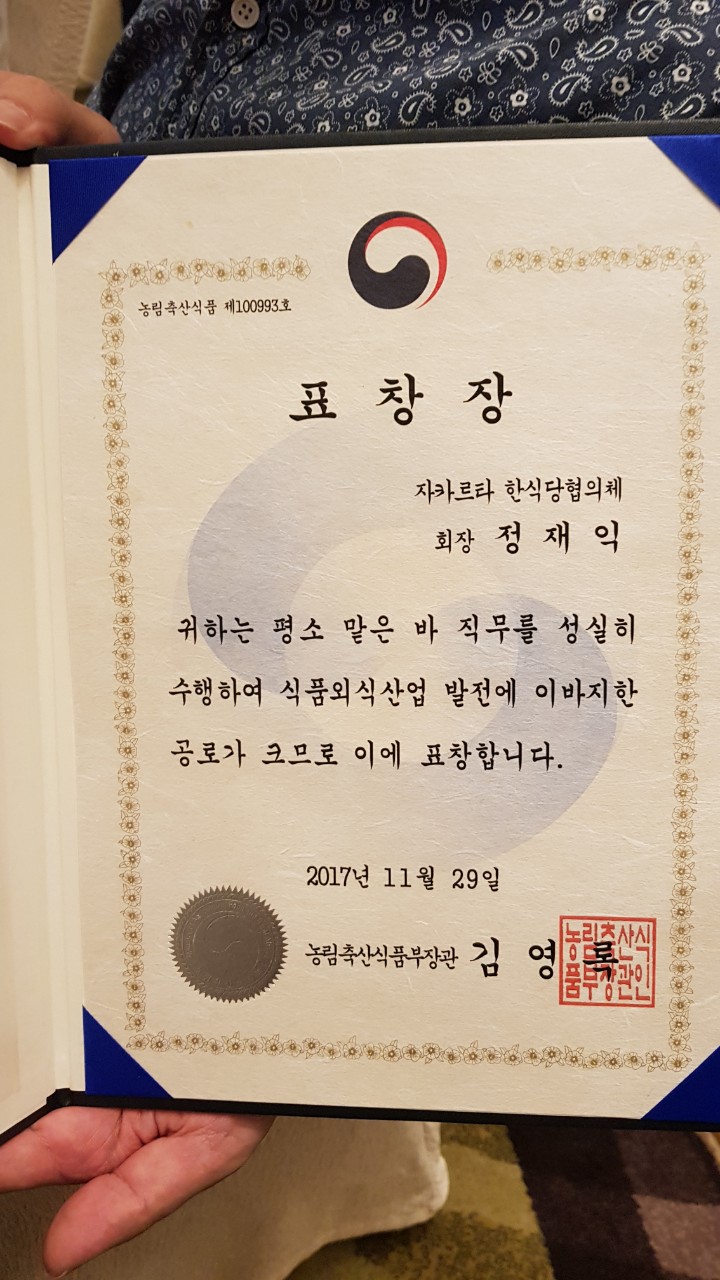 농림축산식품 제100993호
표 창 장
자카르타 한식당협의체
회장 정 재 익
귀하는 평소 맡은 바 직무를 성실히
수행하여 식품외식산업 발전에 이바지한
공로가 크므로 이에 표창합니다.
2017년 11월 29일
농림축산식품부장관 김 영 록
농림축산식
품부장관인